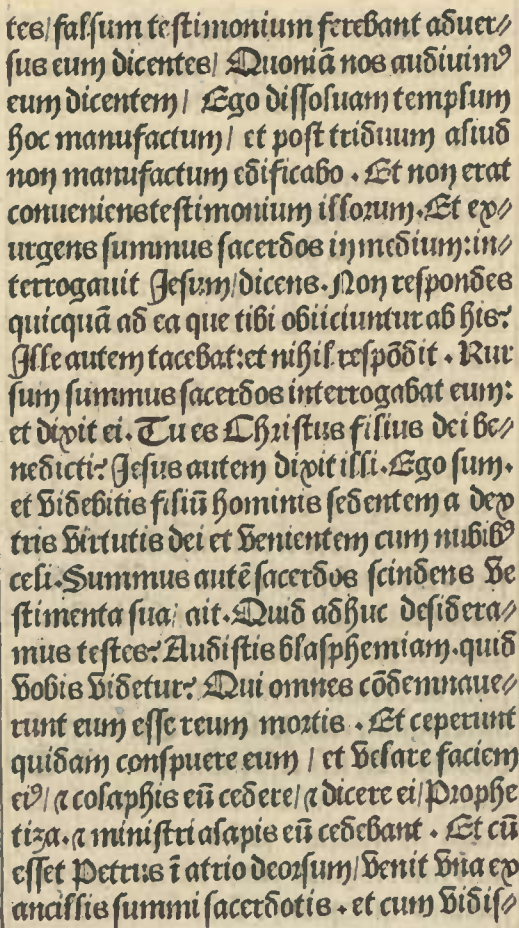 tes/ falsum testimonium ferebant aduer⸗
sus eum dicentes/ Quoniã nos audiuimꝰ
eum dicentem/ Ego dissoluam templum
hoc manufactum/ et post triduum aliud
non manufactum edificabo. Et non erat
conueniens testimonium illorum. Et ex⸗
urgens summus sacerdos in medium: in⸗
terrogauit Jesum/ dicens. Non respondes
quicquã ad ea que tibi obiiciuntur ab his?
Ille autem tacebat: et nihil respõdit. Rur
sum summus sacerdos interrogabat eum:
et dixit ei. Tu es Christus filius dei be⸗
nedicti? Jesus autem dixit illi. Ego sum.
et videbitis filiũ hominis sedentem a dex
tris virtutis dei et venientem cum nubibꝰ
celi. Summus autẽ sacerdos scindens ve
stimenta sua/ ait. Quid adhuc desidera⸗
mus testes? Audistis blasphemiam. quid
vobis videtur? Qui omnes cõdemnaue⸗
runt eum esse reum mortis. Et ceperunt
quidam conspuere eum/ et velare faciem
eiꝰ/ ⁊ colaphis eũ cedere/ ⁊ dicere ei/ Prophe
tiza. ⁊ ministri alapis eũ cedebant. Et cũ
esset Petrus ĩ atrio deorsum/ venit vna ex
ancillis summi sacerdotis. et cum vidis⸗